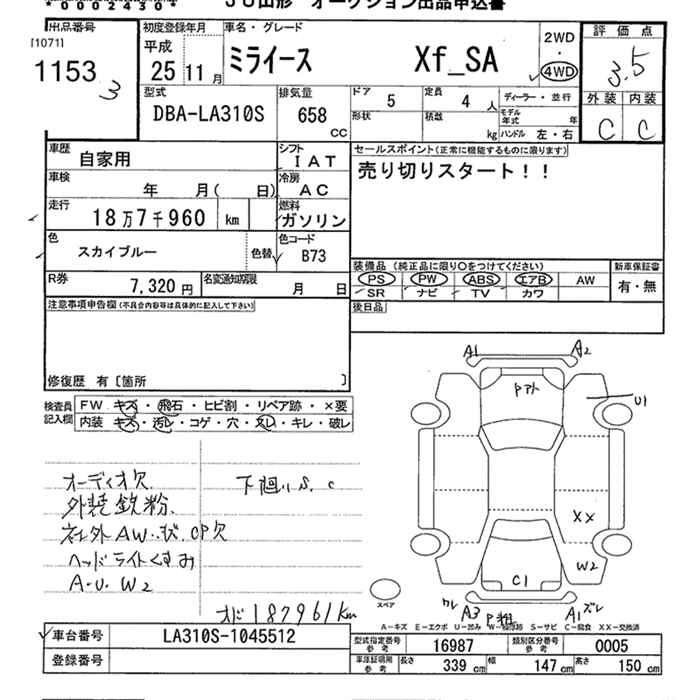 *00002430*
JU山形 オークション出品申込書
出品番号
[1071]
1153
3
初度登録年月
平成
25 11 月
車名・グレード
ミライース Xf_SA
2WD
・
4WD
評価点
3.5
外装 内装
C C
型式
DBA-LA310S
排気量
658
CC
ドア
5
定員
4 人
形状
積載
kg
ディーラー・並行
モデル年式 年
ハンドル 左・右
車歴
自家用
シフト
IAT
車検
年 月( 日)
冷房
AC
走行
18万7千960 km
燃料
ガソリン
色
スカイブルー
色替
色コード
B73
R券
7,320 円
名変通知期限
月 日
セールスポイント(正常に機能するものに限ります)
売り切りスタート!!
装備品 (純正品に限り○をつけてください)
新車保証書
PS PW ABS エアB AW
SR ナビ TV カワ
有・無
後日品
注意事項申告欄(不具合内容等は具体的に記入して下さい)
修復歴 有 〔箇所 〕
検査員記入欄
FW キズ・飛石・ヒビ割・リペア跡・×要
内装 キズ・汚レ・コゲ・穴・スレ・キレ・破レ
オーディオ欠
下廻りS.C
外装鉄粉
社外AW
CP欠
ヘッドライトくすみ
A.U.W2
オド187961km
A1
A2
Pアト
U1
XX
W2
C1
スペア
クレ
A3
P粗
A1
ズレ
A-キズ E-エクボ U-凹み W-補修跡 S-サビ C-腐食 XX-交換済
車台番号
LA310S-1045512
登録番号
型式指定番号
参考
16987
類別区分番号
参考
0005
車庫証明用
参考
長さ
339 cm
幅
147 cm
高さ
150 cm